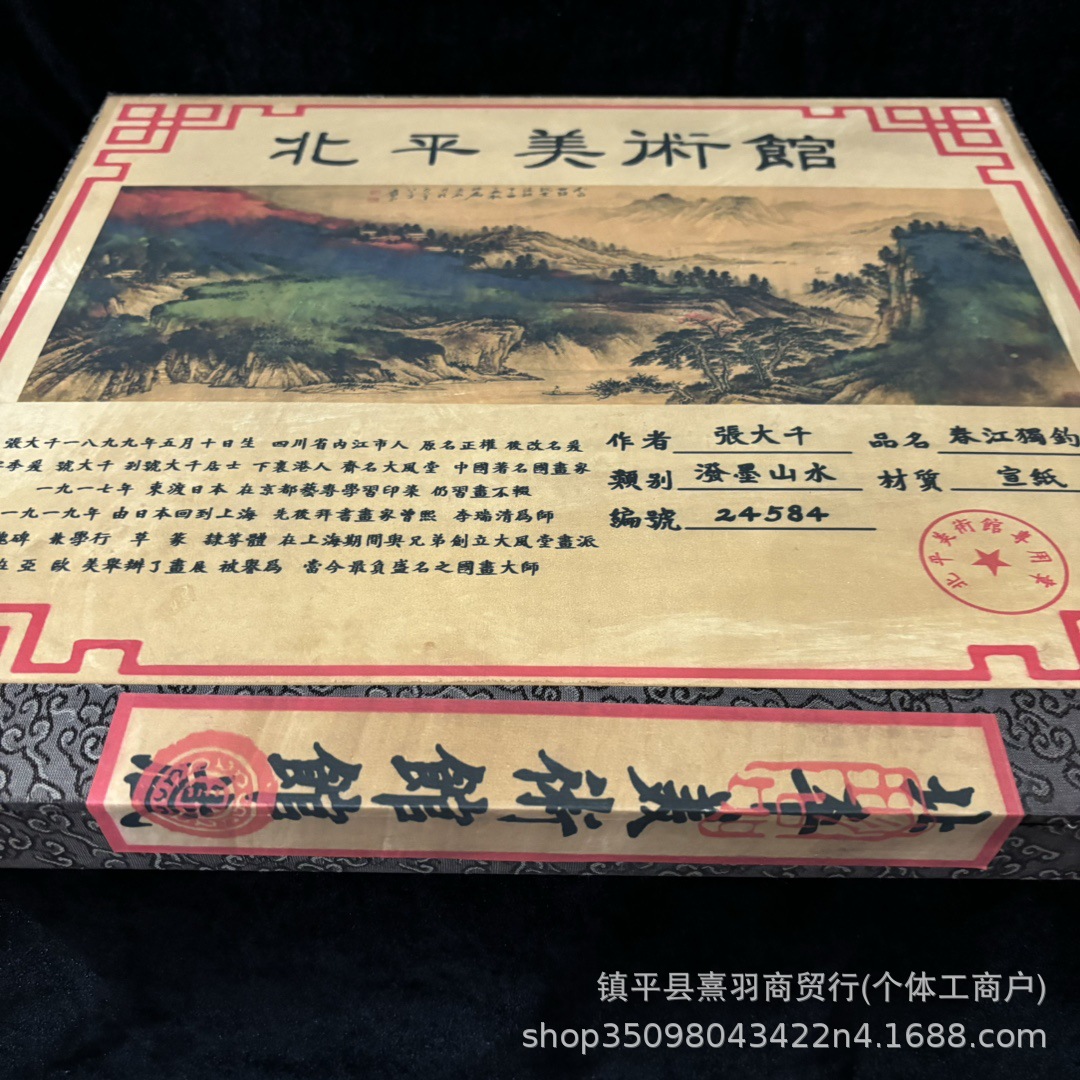 北平美術館
張大千一八九九年五月十日生 四川省內江市人 原名正權 後改名爰
季爰 號大千 別號大千居士 下裏港人 齋名大風堂 中國著名國畫家
一九一七年 東渡日本 在京都藝專學習印染 仍習畫不輟
一九一九年 由日本回到上海 先後拜書畫家曾熙 李瑞清為師
碑 兼學行 草 篆 隸等體 在上海期間與兄弟創立大風堂畫派
在 亞 歐 美舉辦了畫展 被譽為 當今最負盛名之國畫大師
作者 張大千 品名 春江獨釣
類別 潑墨山水 材質 宣紙
編號 24584
北平美術館專用章
北平美術館館藏
镇平县熹羽商贸行(个体工商户)
shop35098043422n4.1688.com